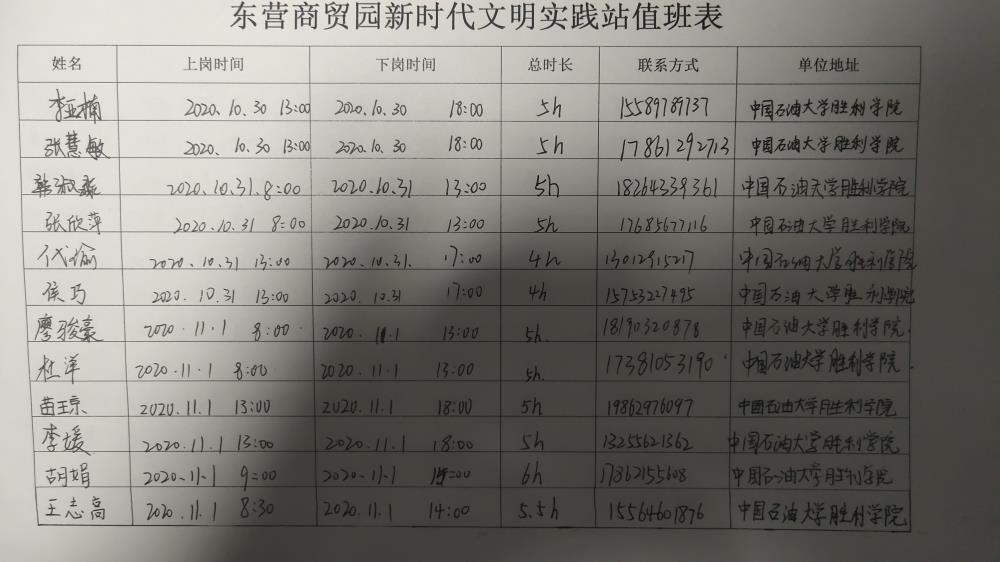 东营商贸园新时代文明实践站值班表
姓名 上岗时间 下岗时间 总时长 联系方式 单位地址
李亚楠 2020.10.30 13:00 2020.10.30 18:00 5h 15589789737 中国石油大学胜利学院
张慧敏 2020.10.30 13:00 2020.10.30 18:00 5h 17861292713 中国石油大学胜利学院
韩淑 2020.10.31.8:00 2020.10.31 13:00 5h 18264339361 中国石油大学胜利学院
张欣萍 2020.10.31 8:00 2020.10.31 13:00 5h 17685677116 中国石油大学胜利学院
代偷 2020.10.31 13:00 2020.10.31. 17:00 4h 13012915217 中国石油大学胜利学院
侯巧 2020.10.31 13:00 2020.10.31 17:00 4h 15753227495 中国石油大学胜利学院
廖骏豪 2020.11.1 8:00 2020.11.1 13:00 5h. 18190320878 中国石油大学胜利学院.
杜洋 2020.11.1 8:00 2020.11.1 13:00 5h. 17381053190 中国石油大学胜利学院.
苗琼 2020.11.1 13:00 2020.11.1 18:00 5h 19862976097 中国石油大学胜利学院
李媛 2020.11.1 13:00 2020.11.1 18:00 5h 13255621362 中国石油大学胜利学院
胡娟 2020.11.1 9:00 2020.11.1 15:00 6h 17862155608 中国石油大学胜利学院
王志高 2020.11.1 8:30 2020.11.1 14:00 5.5h 15564601876 中国石油大学胜利学院